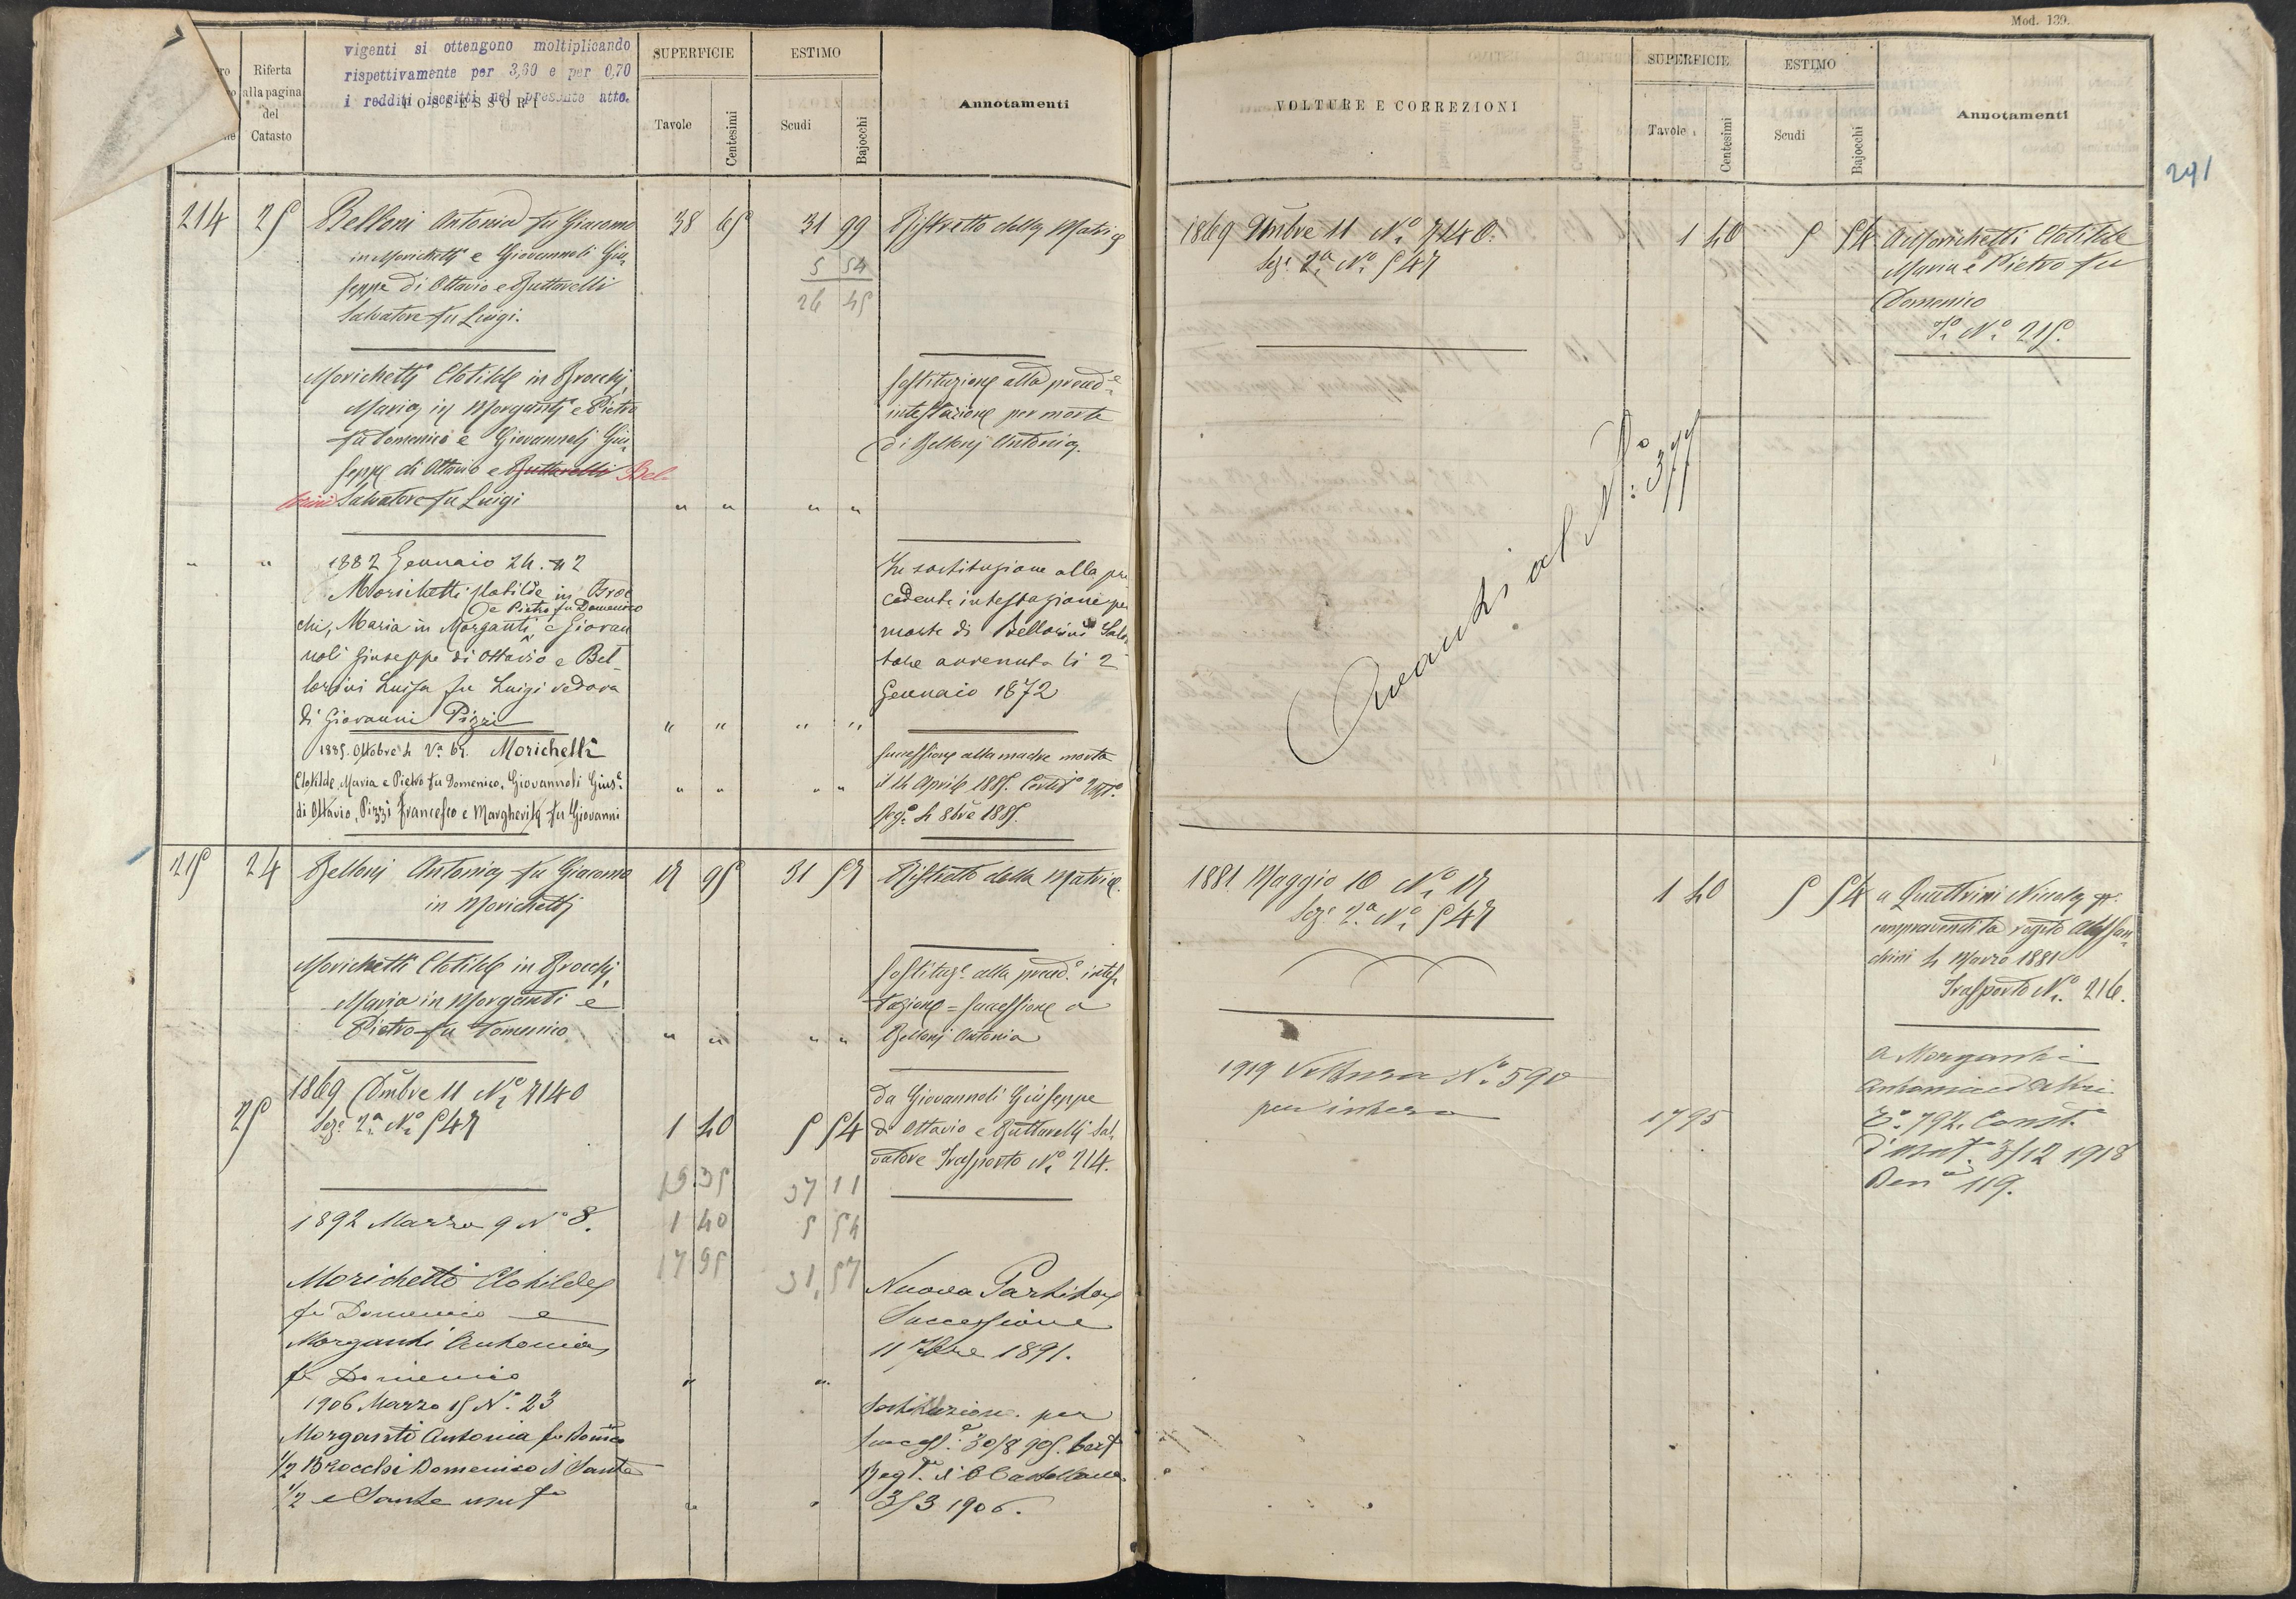 Mod. 139.
291
vigenti si ottengono moltiplicando
rispettivamente per 3,60 e per 0,70
i redditi iscritti nel presente atto.
Riferta
alla pagina
del
Catasto
POSSESSORI
SUPERFICIE
Tavole
Centesimi
ESTIMO
Scudi
Bajocchi
Annotamenti
214 25 Belloni Antonia fu Giacomo 38 65 31 99 Ristretto della Matrice
in Morichetti e Giovannoli Giu-
seppe di Ottavio e Buttarelli
Salvatore fu Luigi.
5 54
26 45
Morichetti Clotilde in Brocchi,
Maria in Morganti e Pietro
fu Domenico e Giovannoli Giu-
seppe di Ottavio e Buttarelli Bel-
lorini Salvatore fu Luigi " " " "
Sostituzione alla preced.e
intestazione per morte
di Belloni Antonia.
" " 1882 Gennaio 24. N 2
Morichetti Clotilde in Broc
chi, Maria in Morganti, e Pietro fu Domenico e Giovan
noli Giuseppe di Ottavio e Bel-
lorini Luisa fu Luigi vedova
di Giovanni Pizzi " " " "
In sostituzione alla pre
cedente intestazione per
morte di Bellorini Salva
tore avvenuta li 2
Gennaio 1872
1885. Ottobre 4 N.o 62. Morichetti
Clotilde, Maria e Pietro fu Domenico, Giovannoli Gius.e
di Ottavio, Pizzi Francesco e Margherita fu Giovanni
" " " "
Successione alla madre morta
il 14 Aprile 1885.
4 8bre 1885.
215 24 Belloni Antonia fu Giacomo 17 95 31 57 Ristretto della Matrice.
in Morichetti
Morichetti Clotilde in Brocchi,
Maria in Morganti e
Pietro fu Domenico " " " "
Sostituz.e alla preced.e intes-
tazione = Successione a
Belloni Antonia
1869 Xmbre 11 N.o 7140
25 Sez.e 2.a N.o 547 1 40 5 54
da Giovannoli Giuseppe
di Ottavio e Buttarelli Sal-
vatore Trasporto N.o 214.
19 35 37 11
1 40 5 54
17 95 31,57
1892 Marzo 9 N.o 8.
Morichetti Clotilde
fu Domenico e
Morganti Antonia
fu Domenico " "
Nuova Partita
Successione
11 1891.
1906 Marzo 15 N.o 23
Morganti Antonia fu Dom.co
1/2 Brocchi Domenico di Sante
1/2 e Sante usuf.o " "
Sostituzione per
success.e 30/8 905.
3/3 1906.
VOLTURE E CORREZIONI
SUPERFICIE
Tavole
Centesimi
ESTIMO
Scudi
Bajocchi
Annotamenti
1869 Xmbre 11 N.o 7140. 1 40 5 54
Sez.e 2.a N.o 547
A Morichetti Clotilde
Maria e Pietro fu
Domenico
T.o N.o 215.
Avanti al N.o 377
1881. Maggio 10 N.o 17 1 40 5 54
Sez.e 2.a N.o 547
a Quattrini Nicola
compravendita rogito Alessan-
drini 4 Marzo 1881
Trasporto N.o 216.
1919 Voltura N.o 590
per intero 17 95
a Morganti
Antonia ed altri
T.o 792. Const.e
d'usuf. 3/12 1918
Den.a 119.